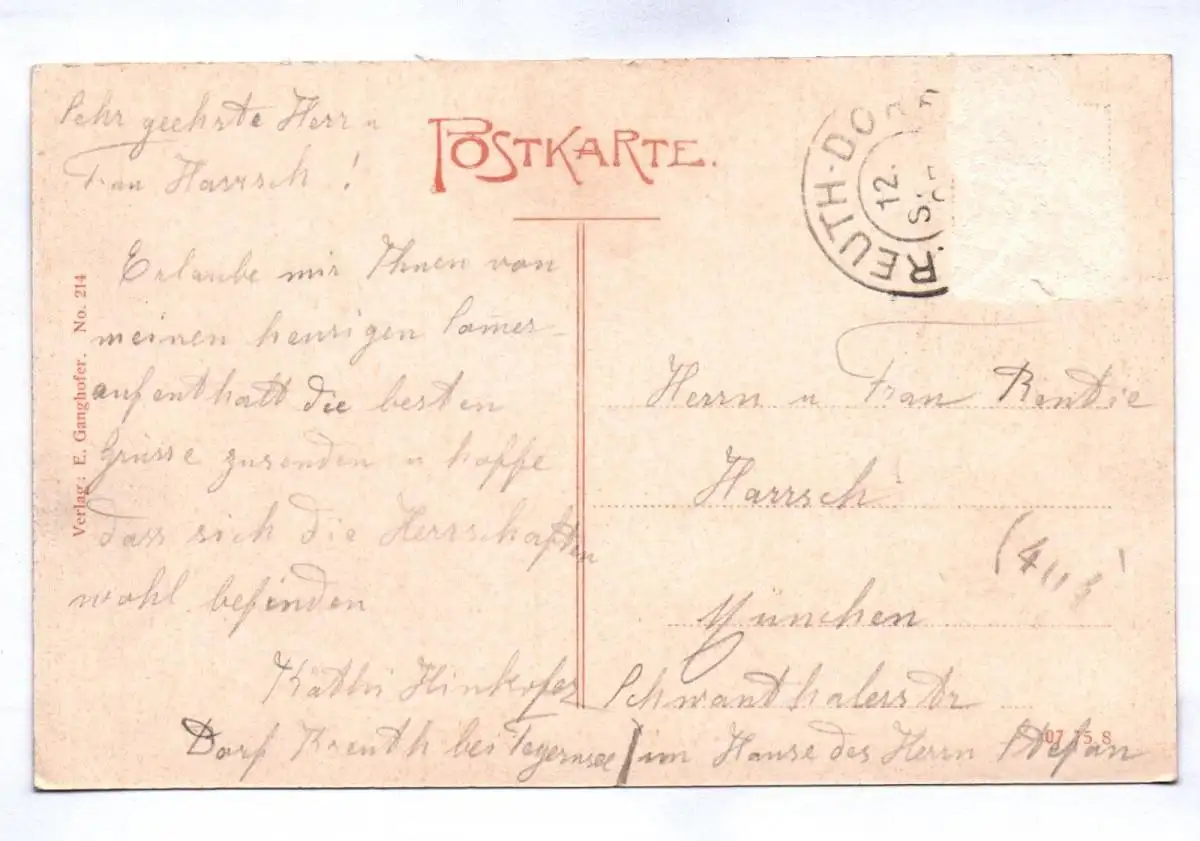 Sehr geehrte Herr u
Frau Harrsch!
Erlaube mir Ihnen von
meinen heurigen Somer-
aufenthalt die besten
Grüsse zusenden u hoffe
dass sich die Herrschaften
wohl befinden
Käthi Hinkofer
Dorf Kreuth bei Tegernsee
POSTKARTE.
REUTH-DO
12.
Herrn u Frau
Harrsch
München
Schwanthalerstr
im Hause des Herrn Stefan
Verlag: E. Ganghofer. No. 214